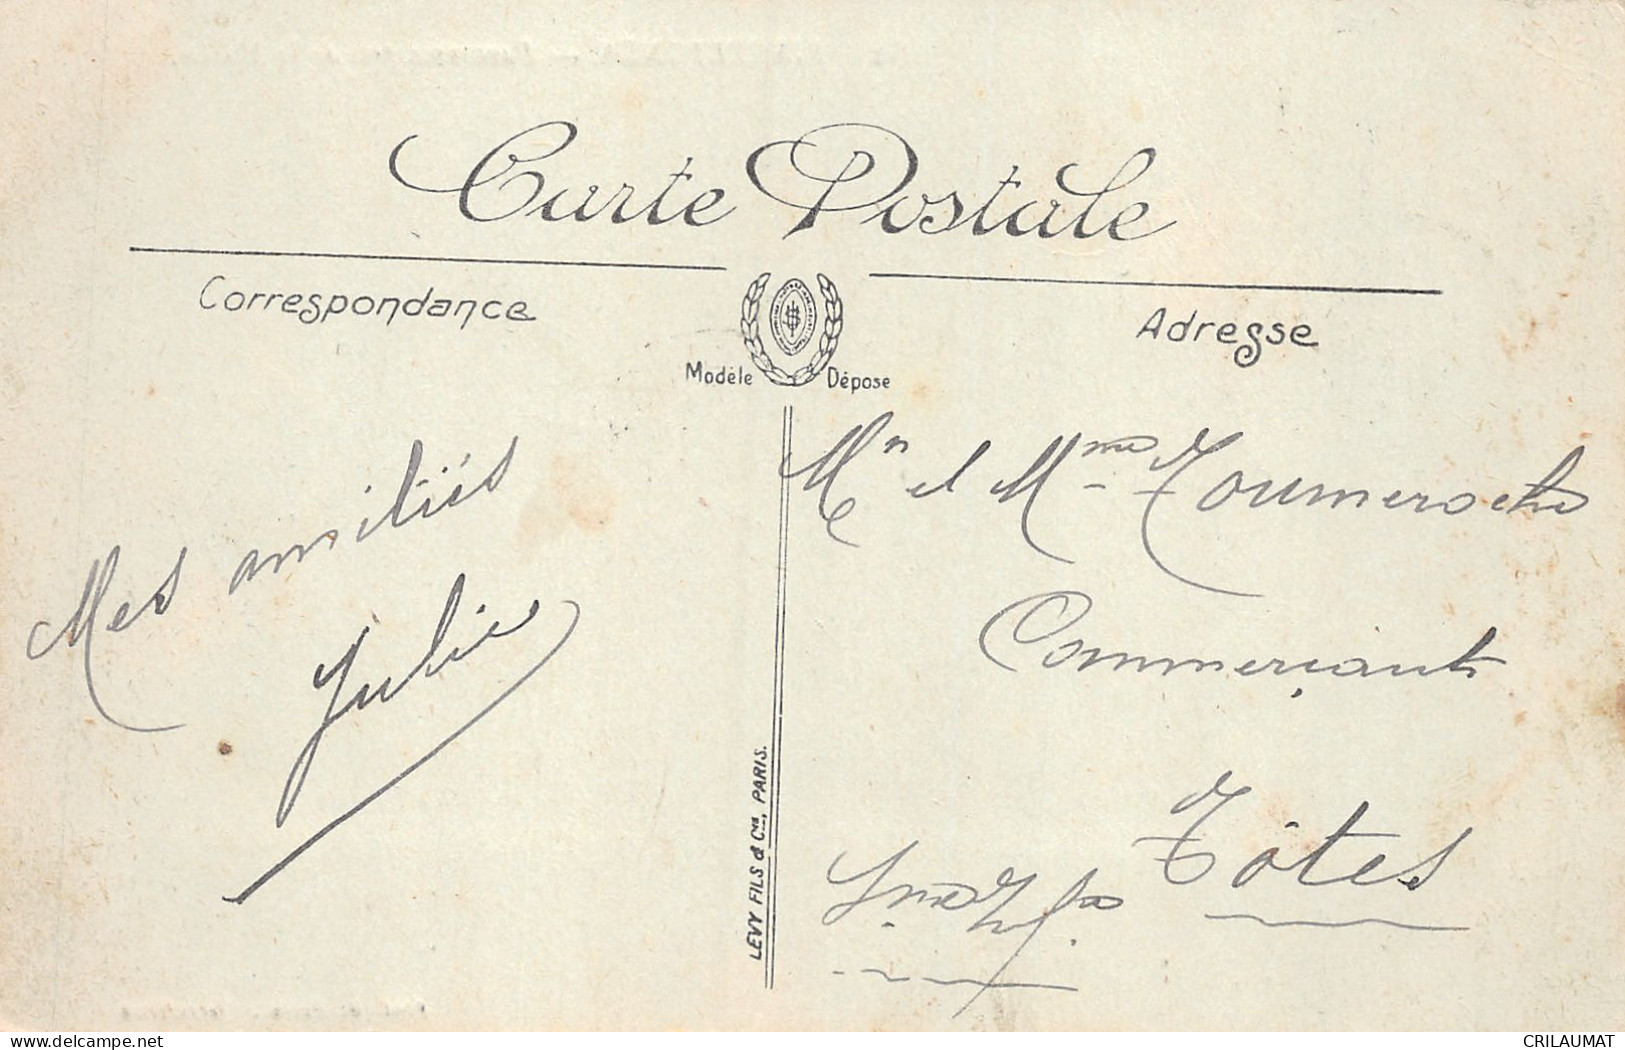 Carte Postale
Correspondance
Adresse
Modèle Déposé
Mes amitiés
Julie
Mr et Mme Toumeroche
Commerçants
Tôtes
LEVY FILS & Cie, PARIS.
delcampe.net
CRILAUMAT